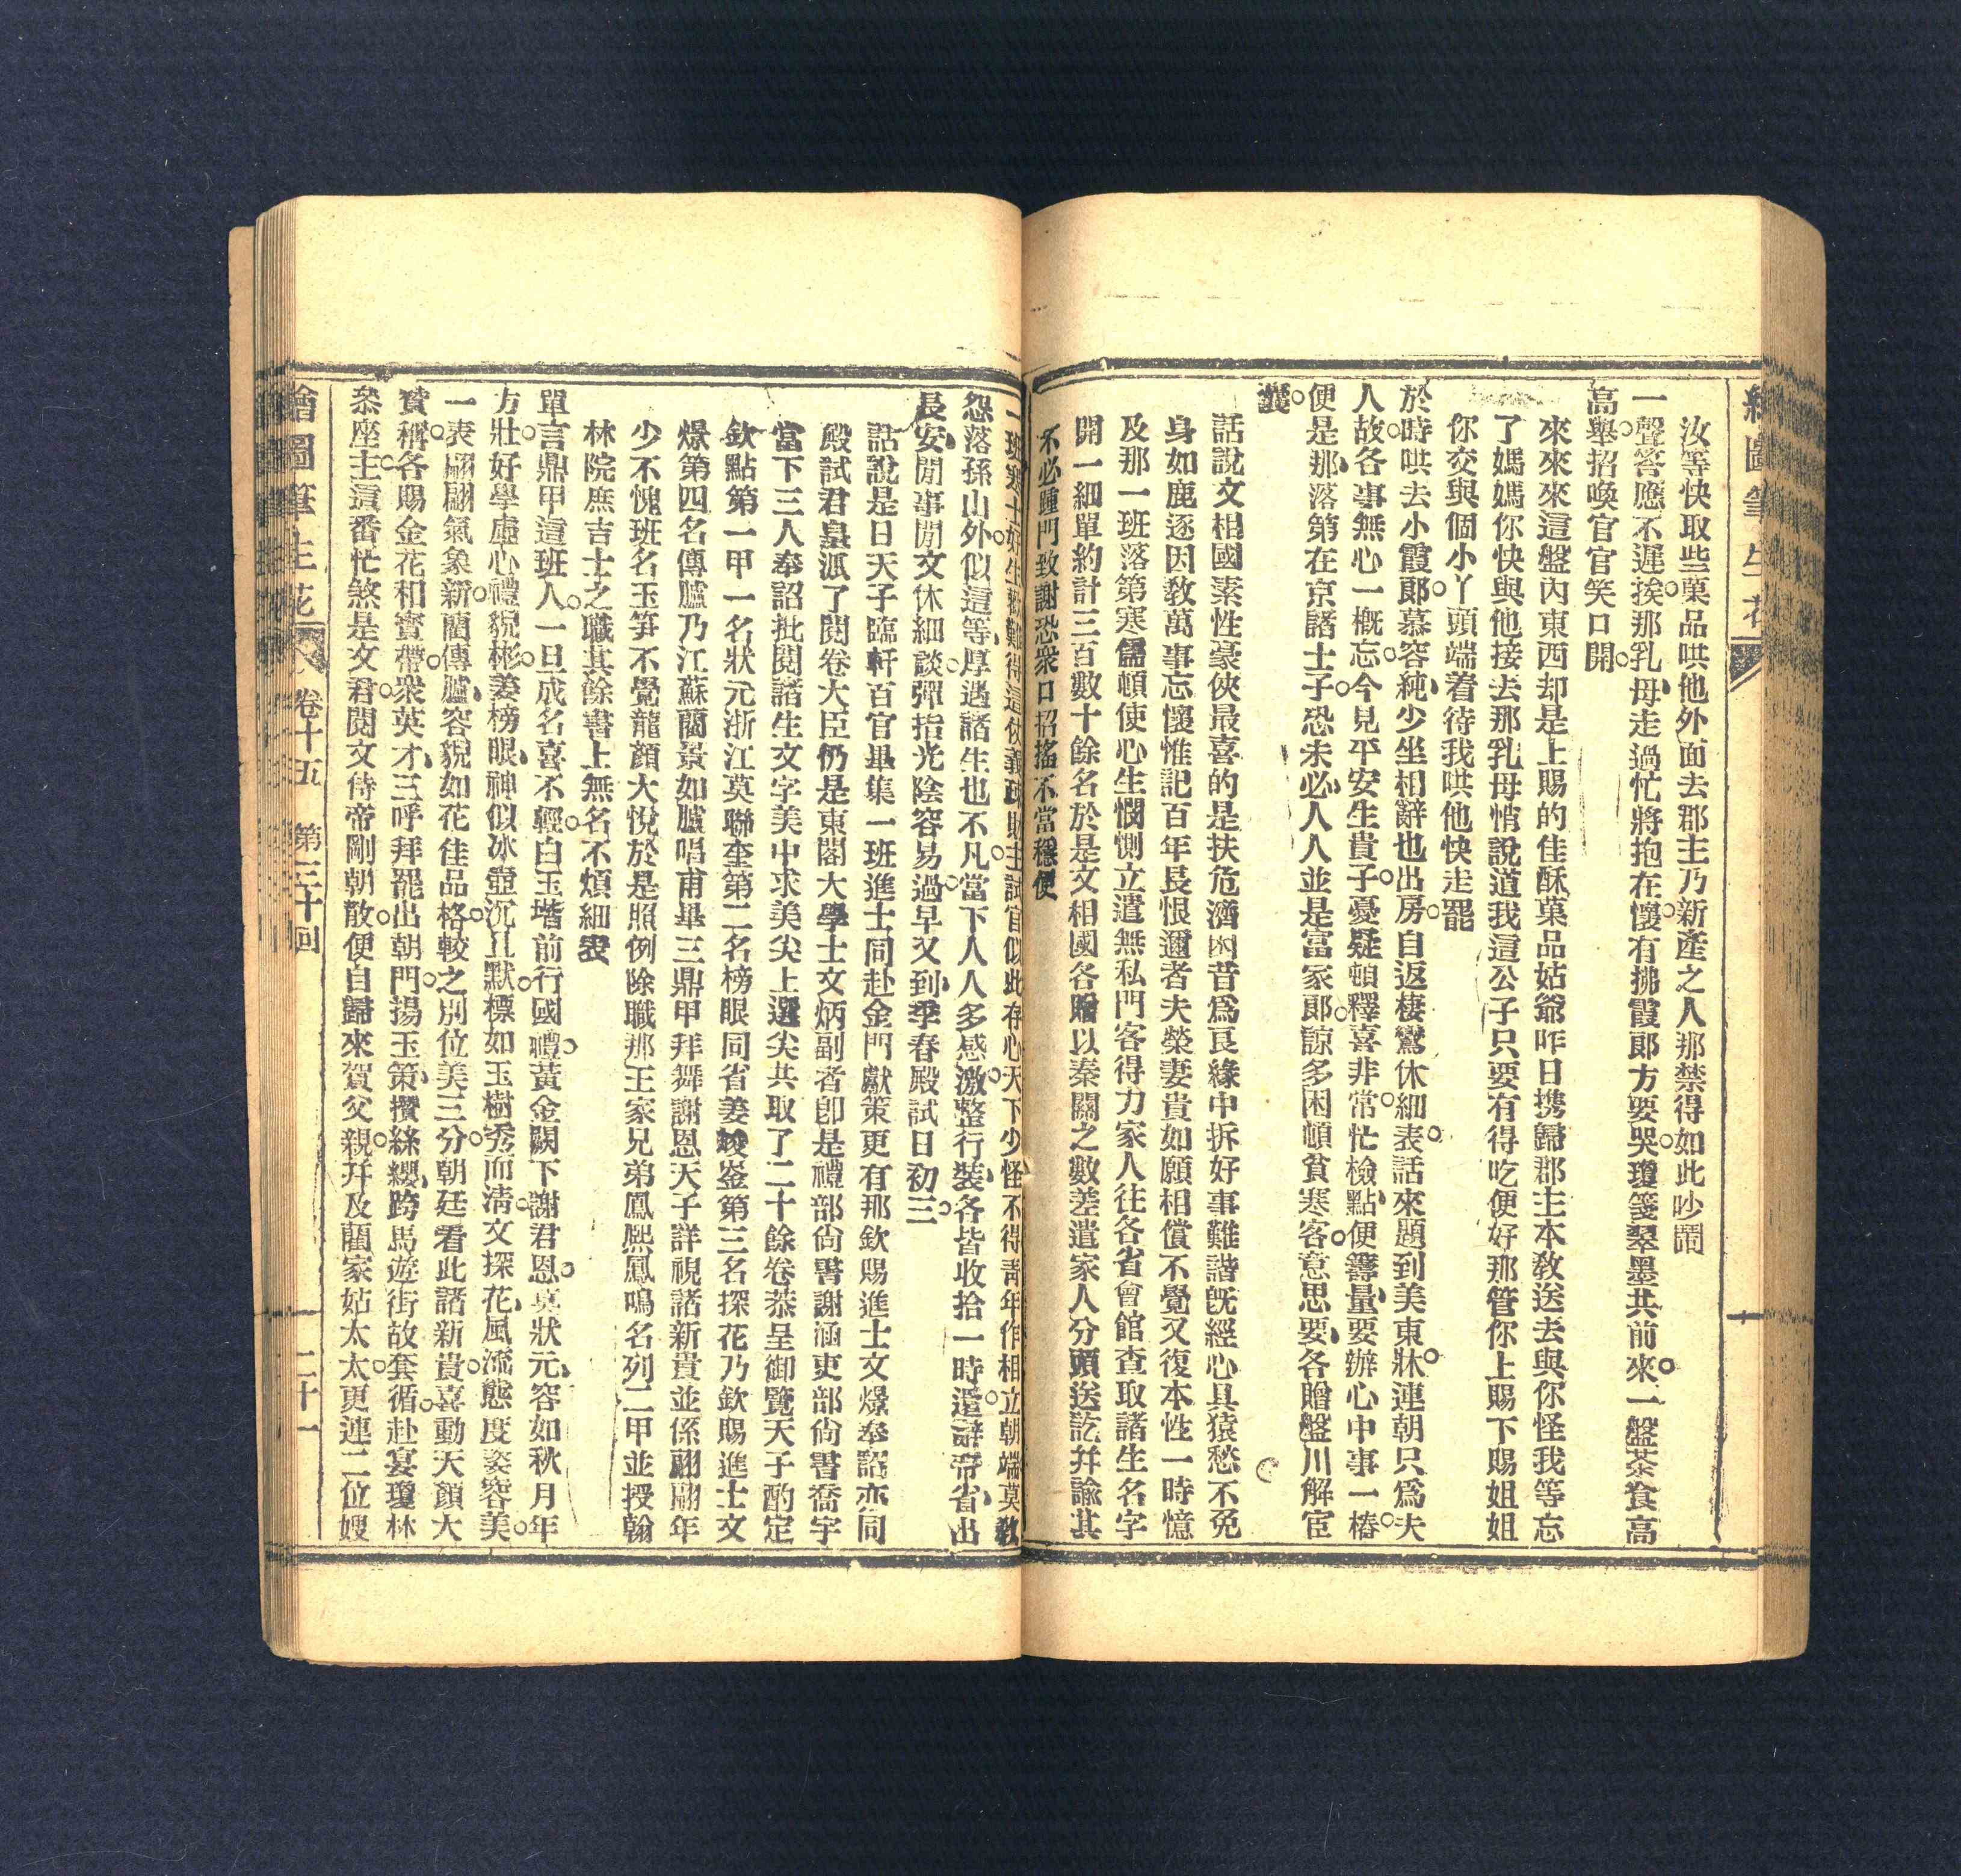 繪圖筆生花
汝等快取些菓品哄他外面去郡主乃新產之人那禁得如此吵鬧
一聲答應不遲挨那乳母走過忙將抱在懷有拂霞郎方要哭瓊箋翠墨共前來一盤茶食高
高舉招喚官官笑口開
來來來這盤內東西却是上賜的佳酥菓品姑爺昨日携歸郡主本教送去與你怪我等忘
了媽媽你快與他接去那乳母悄說道我這公子只要有得吃便好那管你上賜下賜姐姐
你交與個小丫頭端着待我哄他快走罷
於時哄去小霞郎慕容純少坐相辭也出房自返棲鸞休細表話來題到美東牀連朝只爲夫
人故各事無心一概忘今見平安生貴子憂疑頓釋喜非常忙檢點便籌量要辦心中事一樁
便是那落第在京諸士子恐未必人人並是富家郎諒多困頓貧寒客意思要各贈盤川解宦
囊
話說文相國素性豪俠最喜的是扶危濟困昔爲良緣中拆好事難諧旣經心具猿愁不免
身如鹿逐因教萬事忘懷惟記百年長恨邇者夫榮妻貴如願相償不覺又復本性一時憶
及那一班落第寒儒頓使心生憫惻立遣無私門客得力家人往各省會館查取諸生名字
開一細單約計三百數十餘名於是文相國各贈以秦關之數差遣家人分頭送訖幷諭其
不必踵門致謝恐衆口招搖不當穩便
一班寒士好生歡難得這仗義疎財主試官似此存心天下少怪不得靑年作相立朝端莫教
怨落孫山外似這等厚遇諸生也不凡當下人人多感激整行裝各皆收拾一時還辭帝省出
長安閒事閒文休細談彈指光陰容易過早又到季春殿試日初三
話說是日天子臨軒百官畢集一班進士同赴金門獻策更有那欽賜進士文㷡奉詔亦同
殿試君皇派了閱卷大臣仍是東閣大學士文炳副者卽是禮部尙書謝涵吏部尙書喬宇
當下三人奉詔批閱諸生文字美中求美尖上選尖共取了二十餘卷恭呈御覽天子酌定
欽點第一甲一名狀元浙江莫聯奎第二名榜眼同省姜峻崟第三名探花乃欽賜進士文
㷡第四名傳臚乃江蘇藺景如臚唱甫畢三鼎甲拜舞謝恩天子詳視諸新貴並係翩翩年
少不愧班名玉筍不覺龍顏大悅於是照例除職那王家兄弟鳳熙鳳鳴名列二甲並授翰
林院庶吉士之職其餘書上無名不煩細表
單言鼎甲這班人一旦成名喜不輕白玉墀前行國禮黃金闕下謝君恩莫狀元容如秋月年
方壯好學虛心禮貌彬姜榜眼神似冰壺沉且默標如玉樹秀而淸文探花風流態度姿容美
一表翩翩氣象新藺傳臚容貌如花佳品格較之別位美三分朝廷看此諸新貴喜動天顏大
贊稱各賜金花和寶帶衆英才三呼拜罷出朝門揚玉策攢絲纓跨馬遊街故套循赴宴瓊林
叅座主這番忙煞是文君閱文侍帝剛朝散便自歸來賀父親幷及藺家姑太太更連二位嫂
繪圖筆生花 卷十五 第三十回 二十一